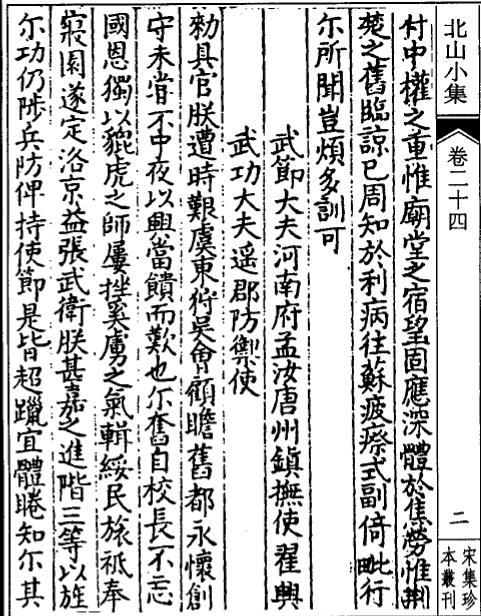 北山小集
卷二十四
二
宋集珍本叢刊
付中權之重惟廟堂之宿望固應深體於焦勞惟荆
楚之舊臨諒已周知於利病往蘇疲瘵式副倚毗行
尓所聞豈煩多訓可
武節大夫河南府孟汝唐州鎮撫使翟興
武功大夫遥郡防禦使
勑具官朕遭時艱虞東狩吳會顧瞻舊都永懷創
守未甞不中夜以興當饋而歎也尓奮自校長不忘
國恩獨以貔虎之師屢挫奚虜之氣輯綏民旅祗奉
寢園遂定洛京益張武衛朕甚嘉之進階三等以旌
尓功仍陟兵防俾持使節是皆超躐宜體睠知尓其